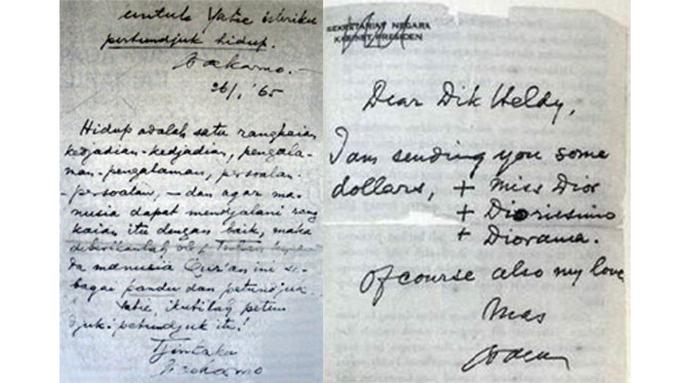 untuk Yatie isteriku
pertundjuk hidup.
Soekarno.—
26/1 '65
Hidup adalah satu rangkaian
kedjadian-kedjadian, pengala-
man-pengalaman, persoalan-
-persoalan, — dan agar ma-
nusia dapat mendjalani rang
kaian itu dengan baik, maka
diberikanlah oleh Tuhan kepa
da manusia Qur'an ini se-
bagai pandu dan petundjuk.
Yatie, ikutilah petun
djuk-petundjuk itu!
Tjintaku
Soekarno
SEKRETARIAT NEGARA
KABINET PRESIDEN
Dear Dik Heldy,
I am sending you some
dollars, + Miss Dior
+ Diorissimo
+ Diorama.
Of course also my love
Mas